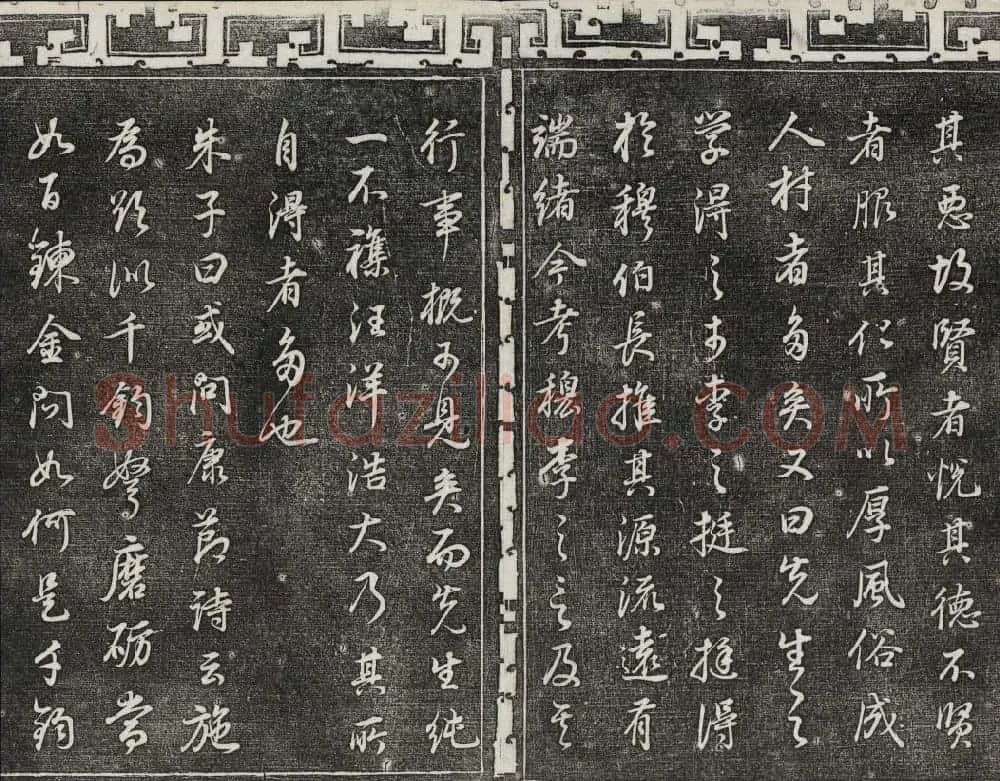 其惡故賢者悅其德不賢
者服其化所以厚風俗成
人材者多矣又曰先生之
学得之于李之挺之挺得
於穆伯長推其源流遠有
端緒今考穆李之言及其
行事概可見矣而先生純
一不雜汪洋浩大乃其所
自得者多也
朱子曰或問康節詩云施
為欲似千鈞弩磨礪當
如百鍊金問如何是千鈞
Shufaziliao.COM